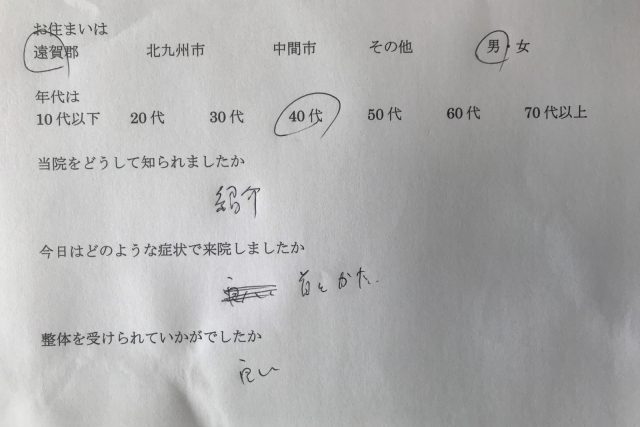 お住まいは
遠賀郡 北九州市 中間市 その他 男・女
年代は
10代以下 20代 30代 40代 50代 60代 70代以上
当院をどうして知られましたか
紹介
今日はどのような症状で来院しましたか
首とかた
整体を受けられていかがでしたか
良い